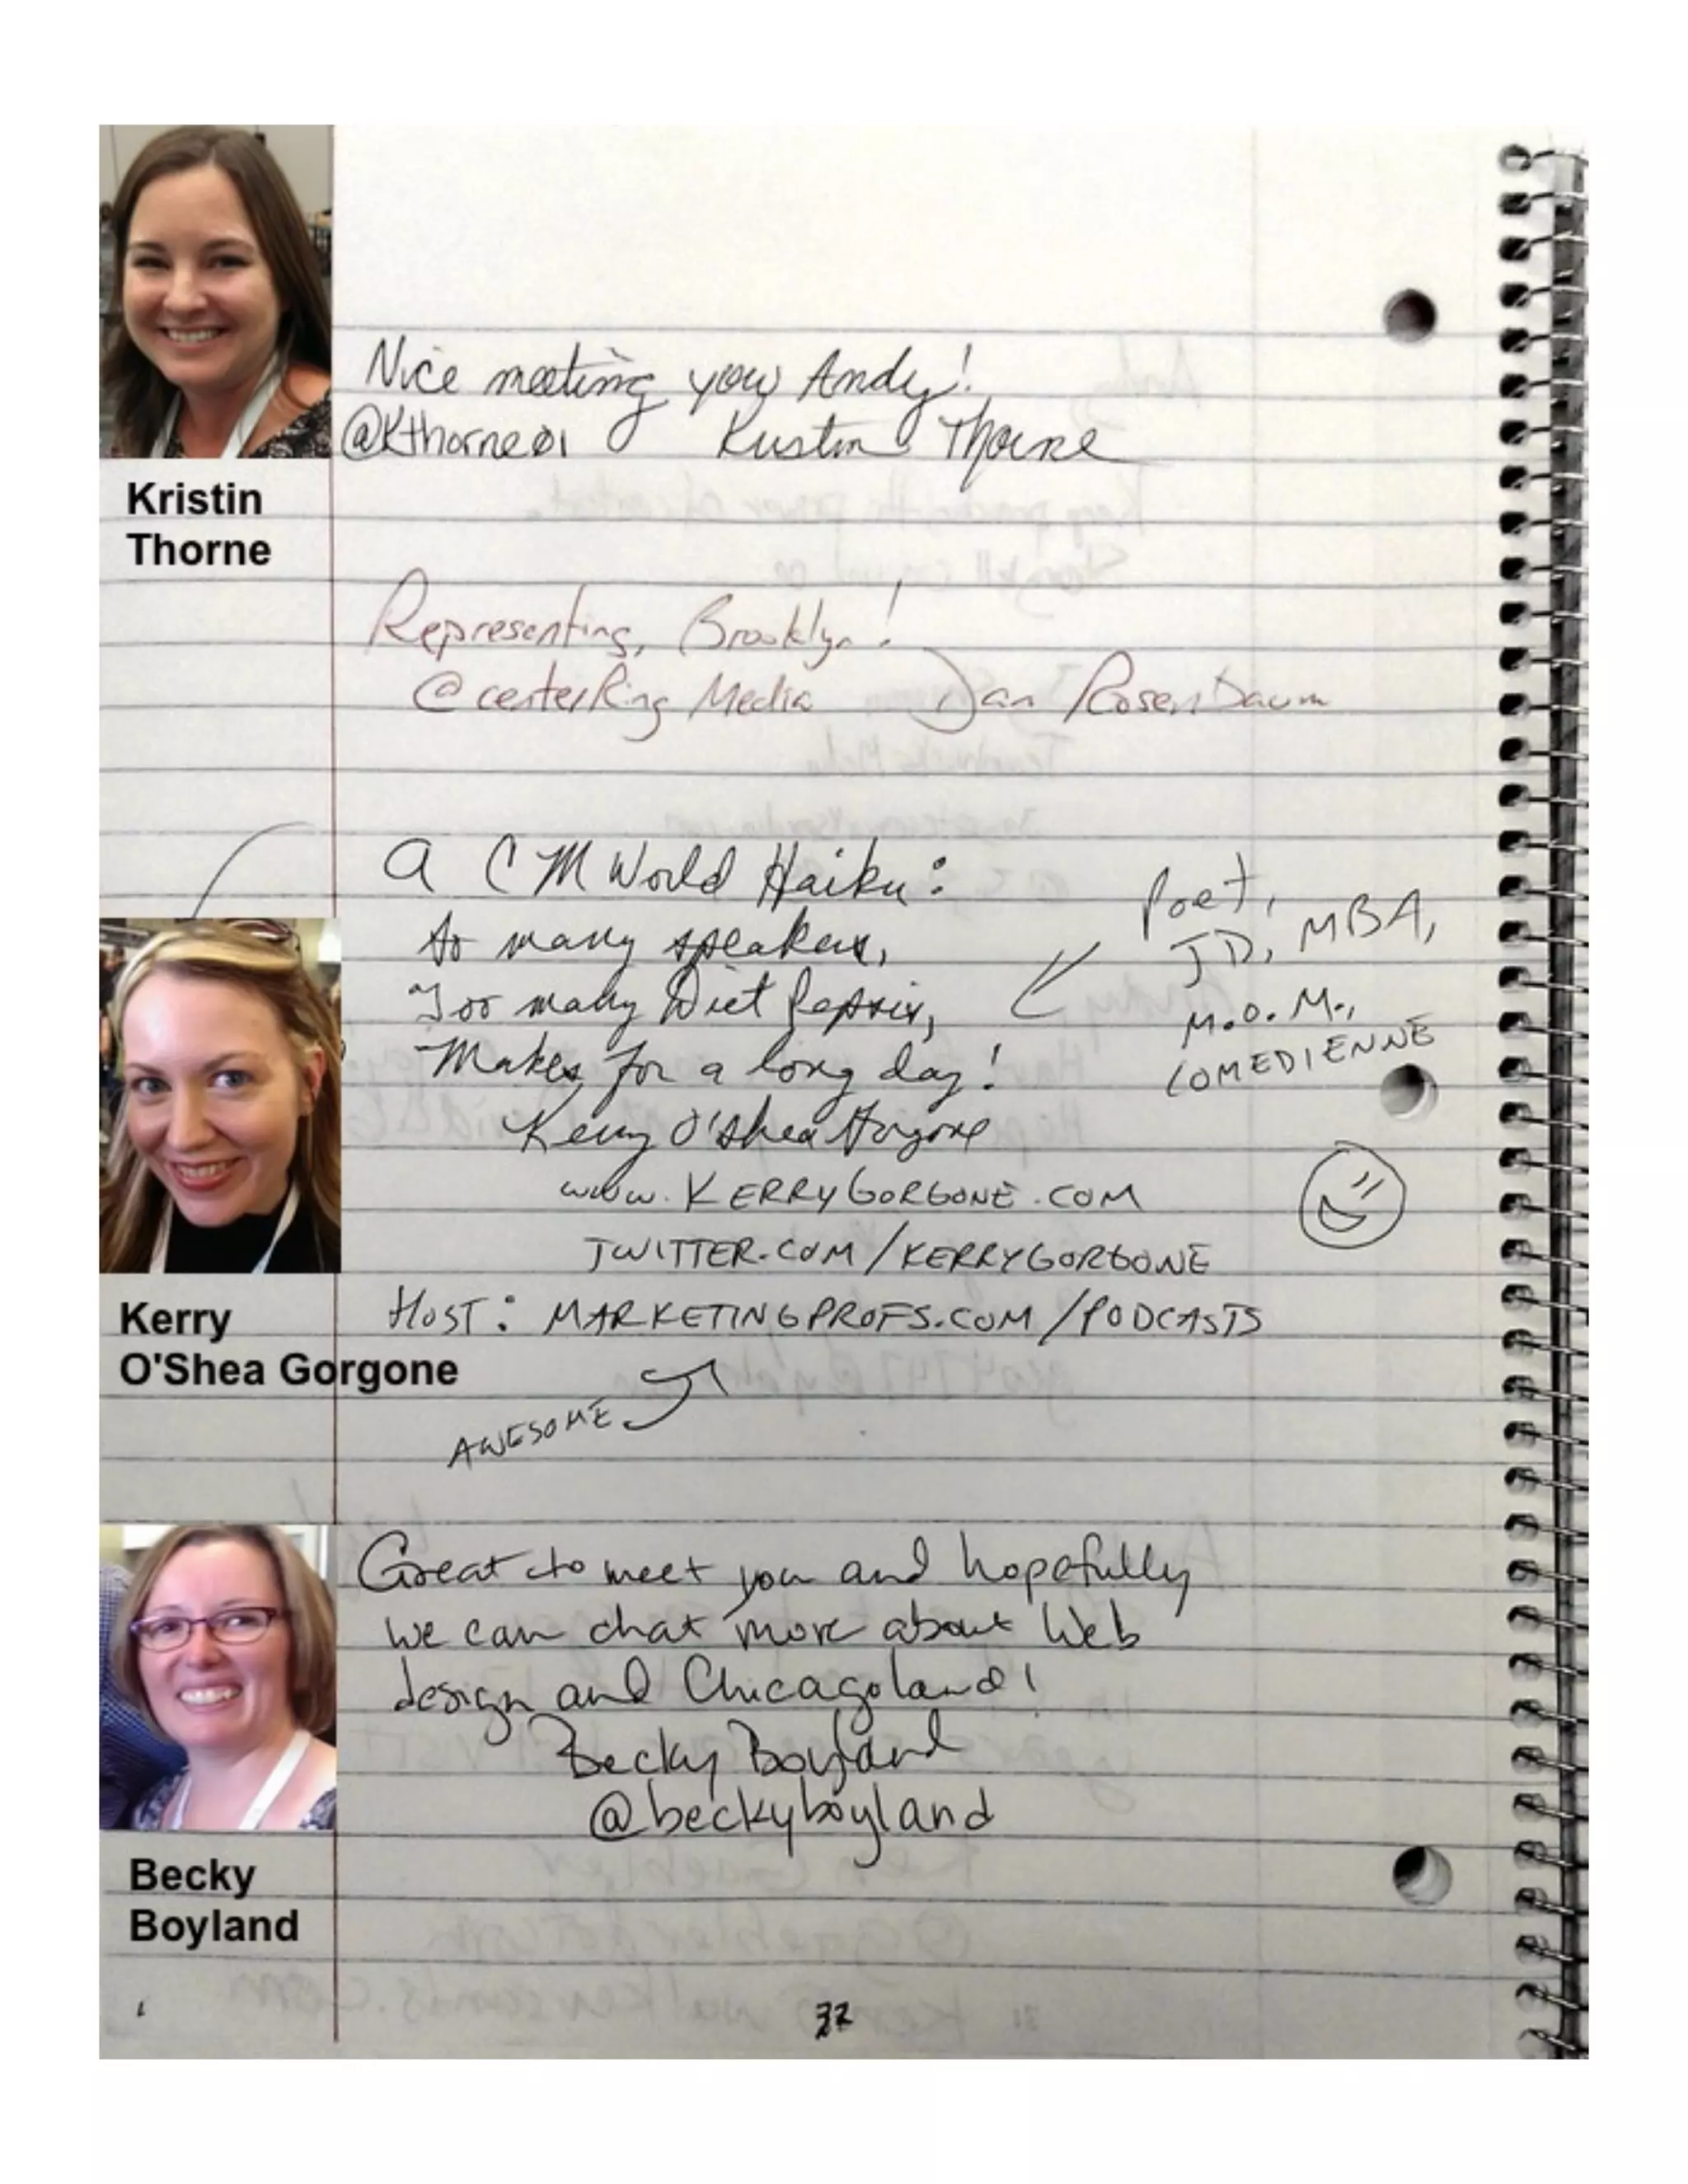 Nice meeting you Andy!
@Kthorne01 Kristin Thorne
Kristin
Thorne
Representing, Brooklyn!
@centerRing Media Dan Rosenbaum
A CM World Haiku:
So many speakers,
Too many Diet Pepsis,
Makes for a long day!
Kerry O'Shea Gorgone
Poet,
JD, MBA,
M.O.M.,
COMEDIENNE
www.KERRYGORGONE.COM
TWITTER.COM/KERRYGORGONE
HOST: MARKETINGPROFS.COM/PODCASTS
Kerry
O'Shea Gorgone
AWESOME
Great to meet you and hopefully
we can chat more about Web
design and Chicagoland!
Becky Boyland
@beckyboyland
Becky
Boyland